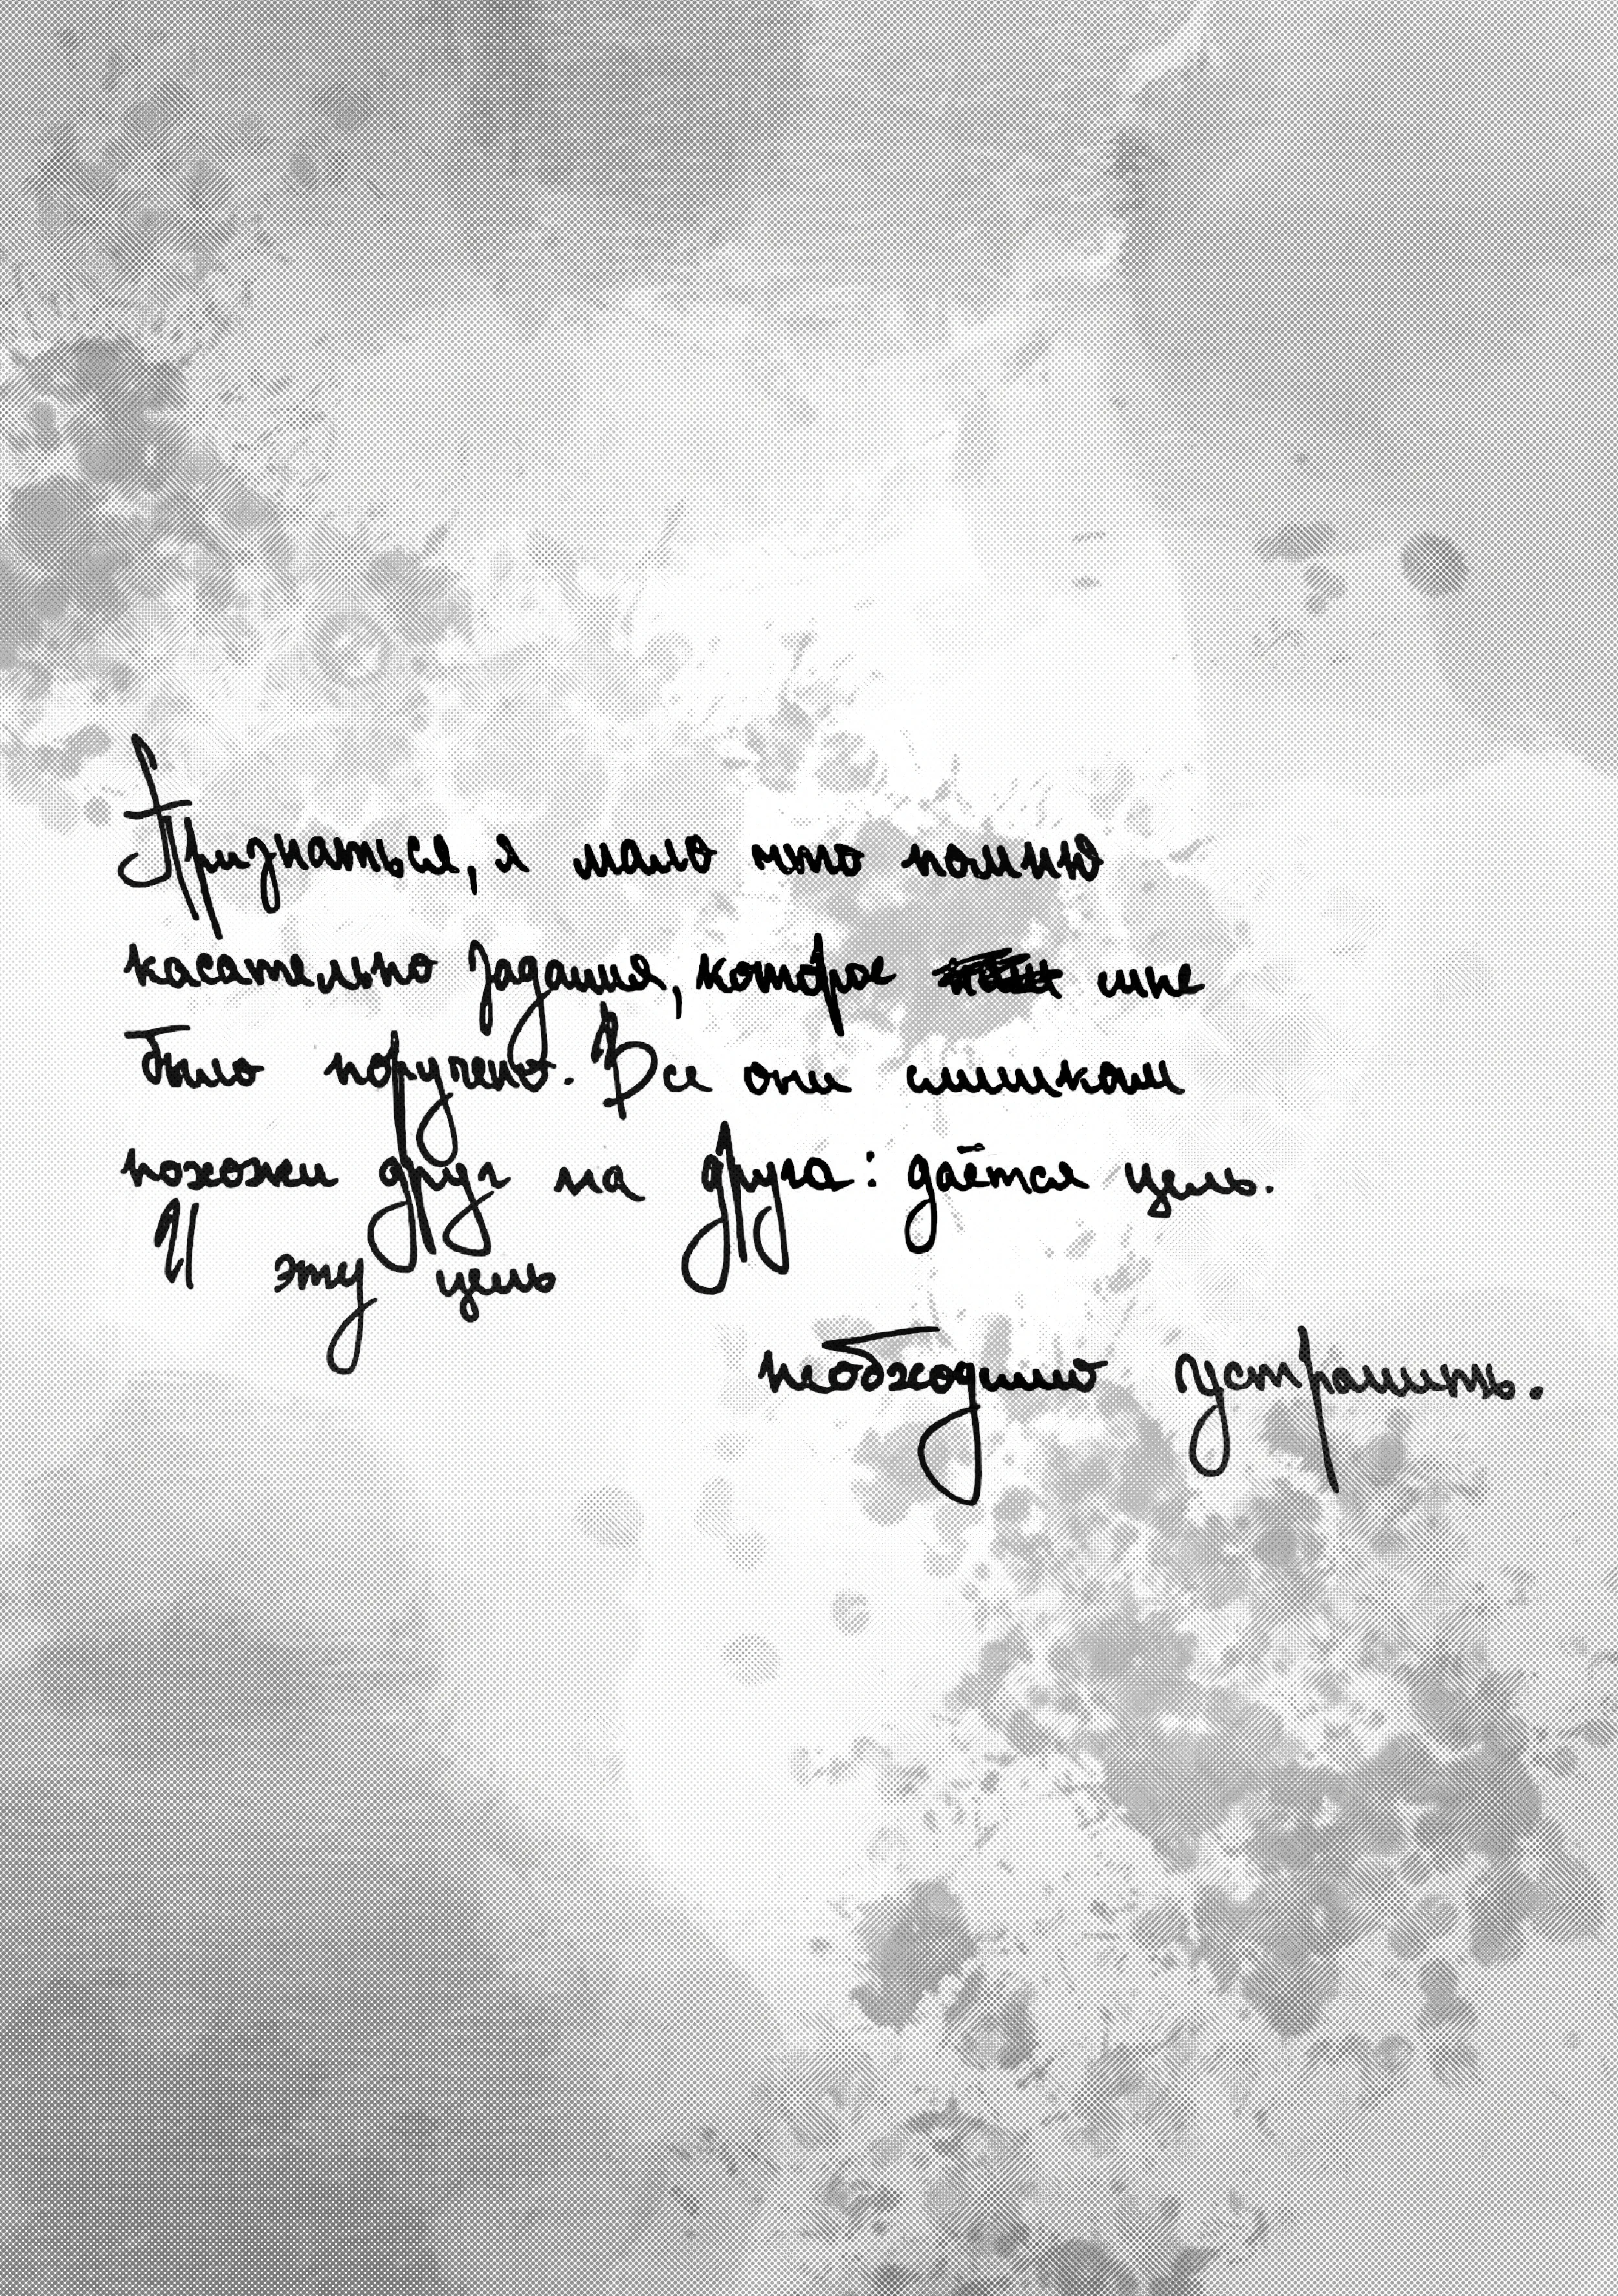 Признаться, я мало что помню
касательно задания, которое мне
было поручено. Все они слишком
похожи друг на друга: даётся цель.
И эту цель
необходимо устранить.